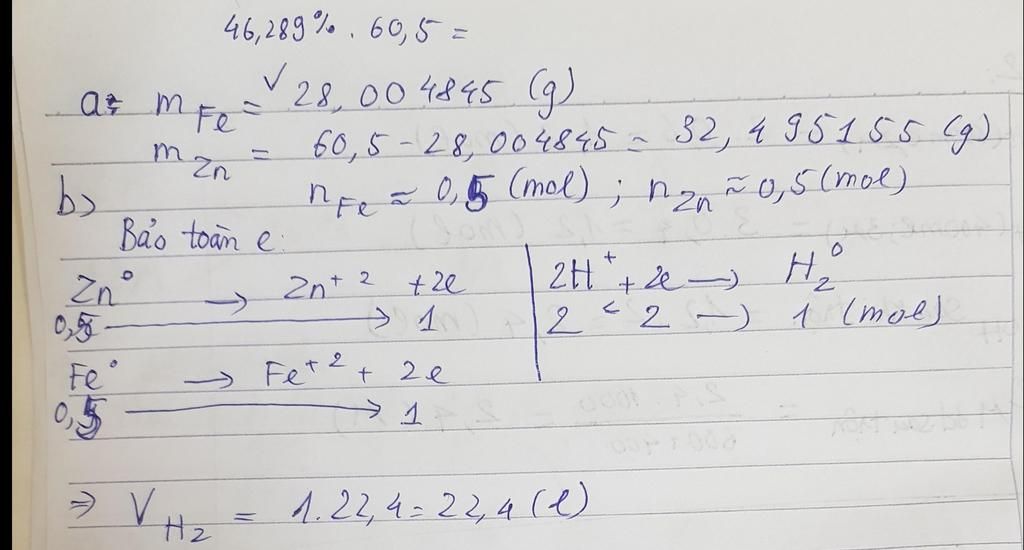 46,289% . 60,5 =
a: m Fe = 28,004845 (g)
m Zn = 60,5 - 28,004845 = 32,495155 (g)
b) n Fe ≈ 0,5 (mol) ; n Zn ≈ 0,5 (mol)
Bảo toàn e:
Zn⁰ → Zn⁺² + 2e
0,5 → 1
Fe⁰ → Fe⁺² + 2e
0,5 → 1
2H⁺ + 2e → H₂⁰
2 < 2 → 1 (mol)
⇒ V H₂ = 1.22,4 = 22,4 (l)